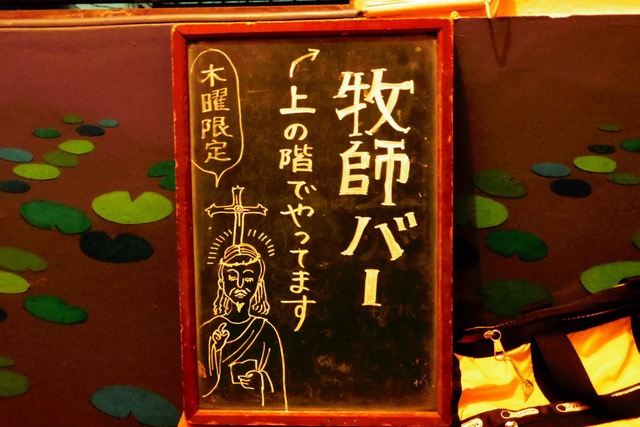 牧師バー
上の階でやってます
木曜限定